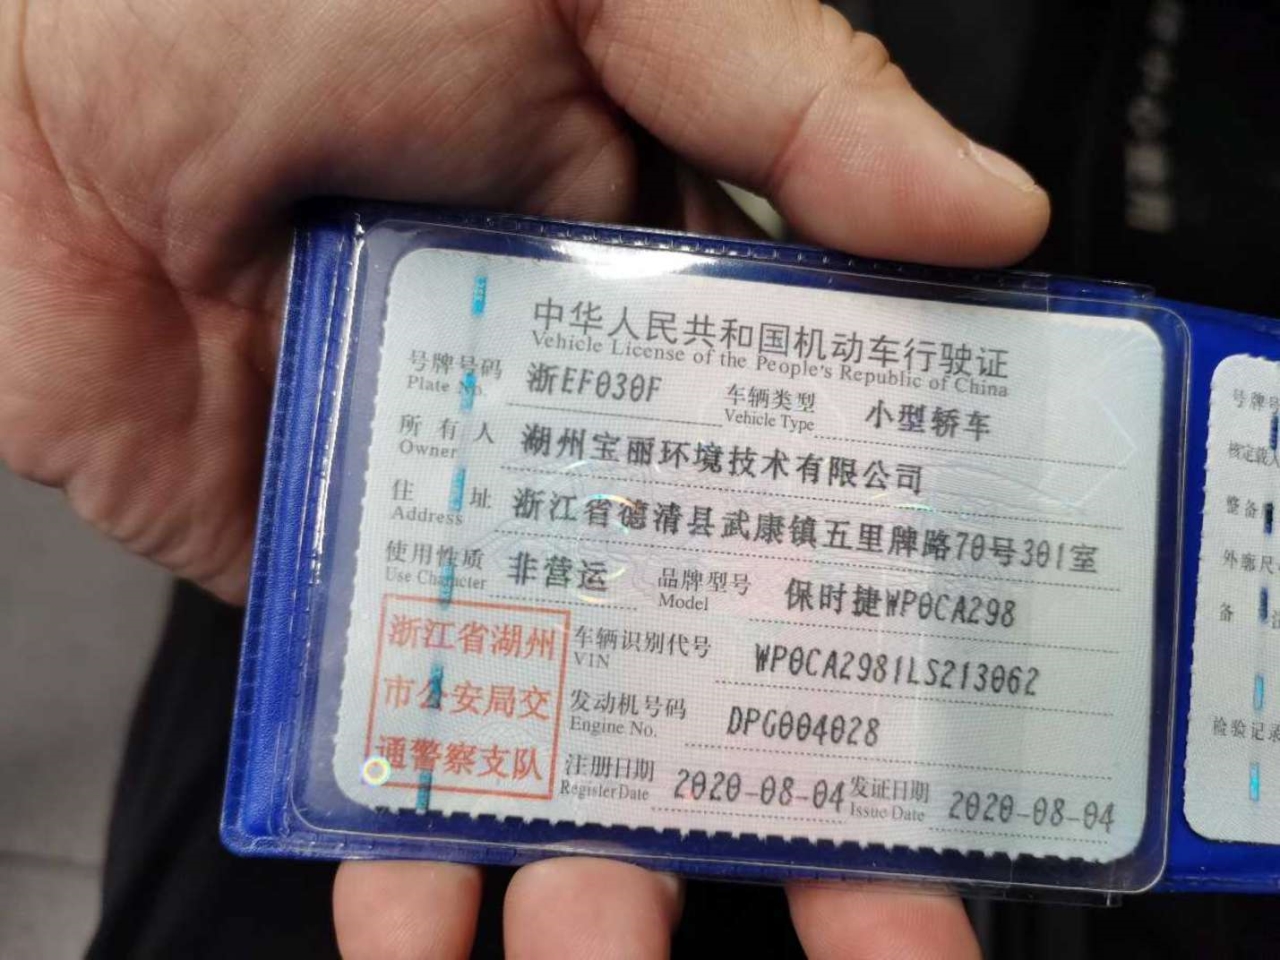 中华人民共和国机动车行驶证
Vehicle License of the People's Republic of China
号牌号码 浙EF030F 车辆类型 小型轿车
Plate No. Vehicle Type
所有人 湖州宝丽环境技术有限公司
Owner
住址 浙江省德清县武康镇五里牌路70号301室
Address
使用性质 非营运 品牌型号 保时捷WP0CA298
Use Character Model
浙江省湖州
市公安局交
通警察支队
车辆识别代号 WP0CA2981LS213062
VIN
发动机号码 DPG004028
Engine No.
注册日期 2020-08-04 发证日期 2020-08-04
Register Date Issue Date
号牌号
核定载人
整备
外廓尺
备
检验记录